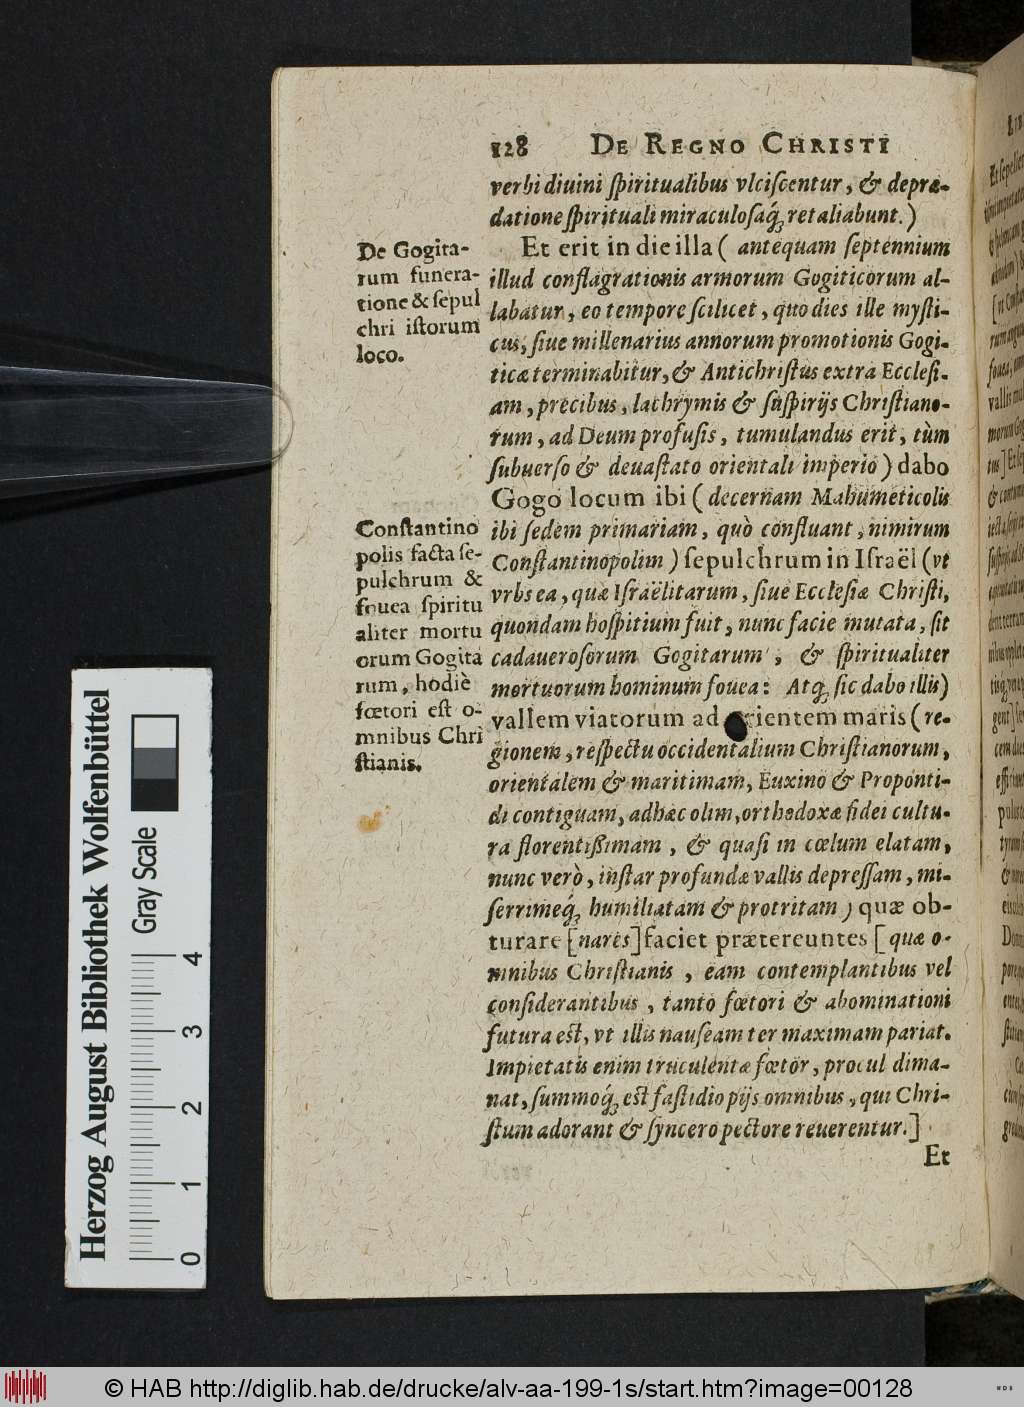 128 DE REGNO CHRISTI
verbi diuini ſpiritualibus vlciſcentur, & depræ-
datione ſpirituali miraculoſaq́ꝫ retaliabunt.)
De Gogita-
rum funera-
tione & ſepul
chri iſtorum
loco.
Et erit in die illa ( antequam ſeptennium
illud conflagrationis armorum Gogiticorum al-
labatur, eo tempore ſcilicet, quo dies ille myſti-
cus, ſiue millenarius annorum promotionis Gogi-
ticæ terminabitur, & Antichriſtus extra Eccleſi-
am, precibus, lachrymis & ſuſpirijs Chriſtiano-
rum, ad Deum profuſis, tumulandus erit, tùm
ſubuerſo & deuaſtato orientali imperio) dabo
Gogo locum ibi ( decernam Mahumeticolis
Conſtantino
polis facta ſe-
pulchrum &
fouea ſpiritu
aliter mortu
orum Gogita
rum, hodiè
fœtori eſt o-
mnibus Chri
ſtianis.
ibi ſedem primariam, quò confluant, nimirum
Conſtantinopolim ) ſepulchrum in Iſraël (vt
vrbs ea, quæ Iſraëlitarum, ſiue Eccleſiæ Chriſti,
quondam hoſpitium fuit, nunc facie mutata, ſit
cadaueroſorum Gogitarum, & ſpiritualiter
mortuorum hominum fouea: Atqꝫ ſic dabo illis)
vallem viatorum ad orientem maris ( re-
gionem, reſpectu occidentalium Chriſtianorum,
orientalem & maritimam, Euxino & Proponti-
di contiguam, adhæc olim, orthodoxæ fidei cultu-
ra florentißimam, & quaſi in cœlum elatam,
nunc verò, inſtar profundæ vallis depreſſam, mi-
ſerrimeq́ꝫ humiliatam & protritam ) quæ ob-
turare [nares] faciet prætereuntes [ quæ o-
mnibus Chriſtianis, eam contemplantibus vel
conſiderantibus, tanto fœtori & abominationi
futura eſt, vt illis nauſeam ter maximam pariat.
Impietatis enim truculentæ fœtor, procul dima-
nat, ſummoq́ꝫ eſt faſtidio pijs omnibus, qui Chri-
ſtum adorant & ſyncero pectore reuerentur.]
Et
Herzog August Bibliothek Wolfenbüttel
Gray Scale
0 1 2 3 4
© HAB http://diglib.hab.de/drucke/alv-aa-199-1s/start.htm?image=00128